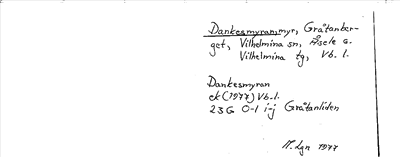 Dankesmyran, myr, Gråtanber-
get, Vilhelmina sn, Åsele a.
Vilhelmina tg, Vb. l.
Dankesmyran
ek (1977) Vb. l.
23G 0-1 i-j Gråtanliden
M. Lgn 1977